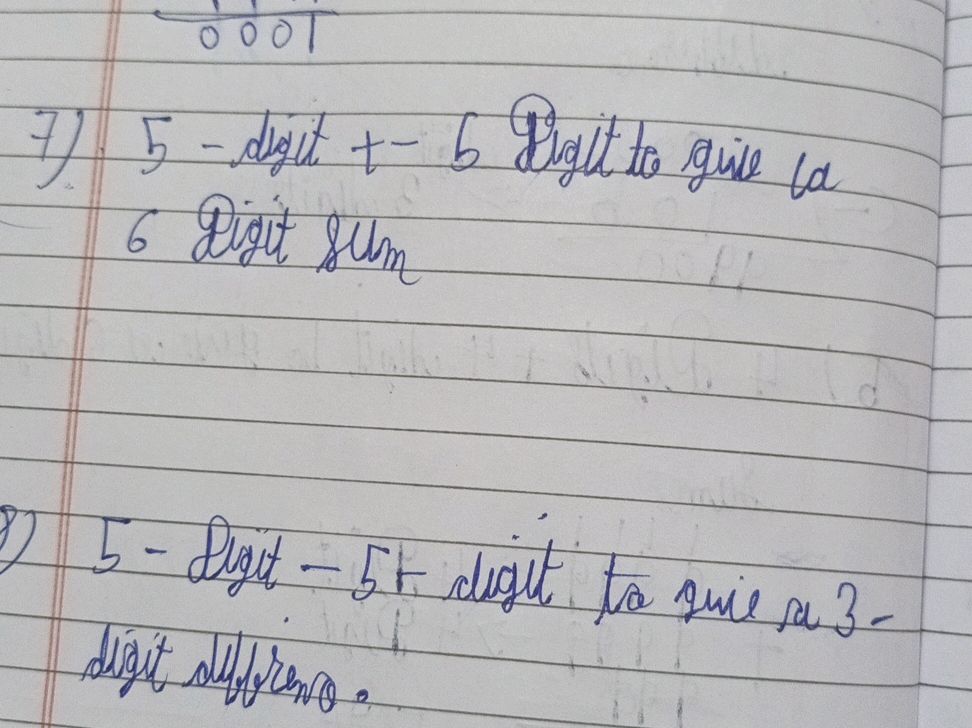 0001
7) 5 - digit + - 5 Digit to give a
6 Digit sum
8) 5 - Digit - 5 - digit to give a 3 -
digit diffreno.